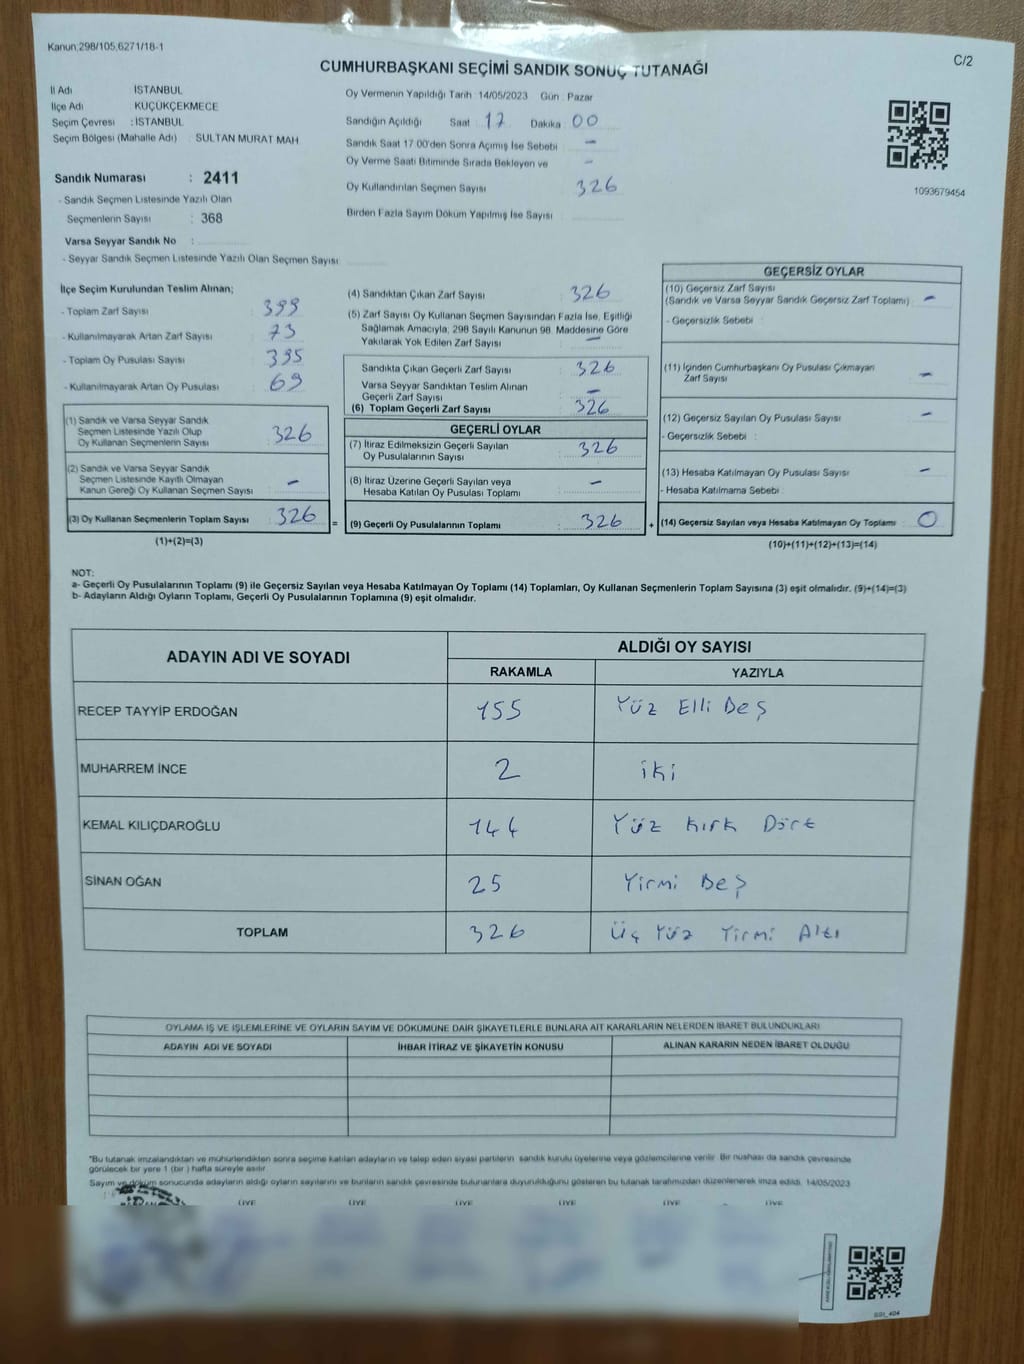 Kanun;298/105,6271/18-1
C/2
CUMHURBAŞKANI SEÇİMİ SANDIK SONUÇ TUTANAĞI
İl Adı İSTANBUL
İlçe Adı : KÜÇÜKÇEKMECE
Seçim Çevresi : İSTANBUL
Seçim Bölgesi (Mahalle Adı) : SULTAN MURAT MAH
Sandık Numarası : 2411
- Sandık Seçmen Listesinde Yazılı Olan
Seçmenlerin Sayısı : 368
Varsa Seyyar Sandık No :
- Seyyar Sandık Seçmen Listesinde Yazılı Olan Seçmen Sayısı
Oy Vermenin Yapıldığı Tarih : 14/05/2023 Gün : Pazar
Sandığın Açıldığı Saat : 17 Dakika : 00
Sandık Saat 17 00'den Sonra Açımış İse Sebebi -
Oy Verme Saati Bitiminde Sırada Bekleyen ve -
Oy Kullandırılan Seçmen Sayısı 326
Birden Fazla Sayım Döküm Yapılmış İse Sayısı
1093679454
İlçe Seçim Kurulundan Teslim Alınan;
- Toplam Zarf Sayısı : 399
- Kullanılmayarak Artan Zarf Sayısı : 73
- Toplam Oy Pusulası Sayısı : 395
- Kullanılmayarak Artan Oy Pusulası : 69
(1) Sandık ve Varsa Seyyar Sandık
Seçmen Listesinde Yazılı Olup
Oy Kullanan Seçmenlerin Sayısı : 326
(2) Sandık ve Varsa Seyyar Sandık
Seçmen Listesinde Kayıtlı Olmayan
Kanun Gereği Oy Kullanan Seçmen Sayısı : -
(3) Oy Kullanan Seçmenlerin Toplam Sayısı : 326
(1)+(2)=(3)
(4) Sandıktan Çıkan Zarf Sayısı : 326
(5) Zarf Sayısı Oy Kullanan Seçmen Sayısından Fazla İse, Eşitliği
Sağlamak Amacıyla, 298 Sayılı Kanunun 98. Maddesine Göre
Yakılarak Yok Edilen Zarf Sayısı : -
Sandıkta Çıkan Geçerli Zarf Sayısı : 326
Varsa Seyyar Sandıktan Teslim Alınan
Geçerli Zarf Sayısı : -
(6) Toplam Geçerli Zarf Sayısı : 326
GEÇERLİ OYLAR
(7) İtiraz Edilmeksizin Geçerli Sayılan
Oy Pusulalarının Sayısı : 326
(8) İtiraz Üzerine Geçerli Sayılan veya
Hesaba Katılan Oy Pusulası Toplamı : -
= (9) Geçerli Oy Pusulalarının Toplamı : 326 +
GEÇERSİZ OYLAR
(10) Geçersiz Zarf Sayısı
(Sandık ve Varsa Seyyar Sandık Geçersiz Zarf Toplamı) -
- Geçersizlik Sebebi :
(11) İçinden Cumhurbaşkanı Oy Pusulası Çıkmayan
Zarf Sayısı -
(12) Geçersiz Sayılan Oy Pusulası Sayısı -
- Geçersizlik Sebebi :
(13) Hesaba Katılmayan Oy Pusulası Sayısı -
- Hesaba Katılmama Sebebi :
(14) Geçersiz Sayılan veya Hesaba Katılmayan Oy Toplamı : 0
(10)+(11)+(12)+(13)=(14)
NOT:
a- Geçerli Oy Pusulalarının Toplamı (9) ile Geçersiz Sayılan veya Hesaba Katılmayan Oy Toplamı (14) Toplamları, Oy Kullanan Seçmenlerin Toplam Sayısına (3) eşit olmalıdır. (9)+(14)=(3)
b- Adayların Aldığı Oyların Toplamı, Geçerli Oy Pusulalarının Toplamına (9) eşit olmalıdır.
ADAYIN ADI VE SOYADI
ALDIĞI OY SAYISI
RAKAMLA YAZIYLA
RECEP TAYYİP ERDOĞAN 155 Yüz Elli Beş
MUHARREM İNCE 2 iki
KEMAL KILIÇDAROĞLU 144 Yüz Kırk Dört
SİNAN OĞAN 25 Yirmi Beş
TOPLAM 326 Üç Yüz Yirmi Altı
OYLAMA İŞ VE İŞLEMLERİNE VE OYLARIN SAYIM VE DÖKÜMÜNE DAİR ŞİKAYETLERLE BUNLARA AİT KARARLARIN NELERDEN İBARET BULUNDUKLARI
ADAYIN ADI VE SOYADI İHBAR İTİRAZ VE ŞİKAYETİN KONUSU ALINAN KARARIN NEDEN İBARET OLDUĞU
*Bu tutanak imzalandıktan ve mühürlendikten sonra seçime katılan adayların ve talep eden siyasi partilerin sandık kurulu üyelerine veya gözlemcilerine verilir. Bir nüshası da sandık çevresinde
görülecek bir yere 1 (bir) hafta süreyle asılır.
Sayım ve döküm sonucunda adayların aldığı oyların sayılarını ve bunların sandık çevresinde bulunanlara duyurulduğunu gösteren bu tutanak tarafımızdan düzenlenerek imza edildi. 14/05/2023
ÜYE ÜYE ÜYE ÜYE ÜYE ÜYE